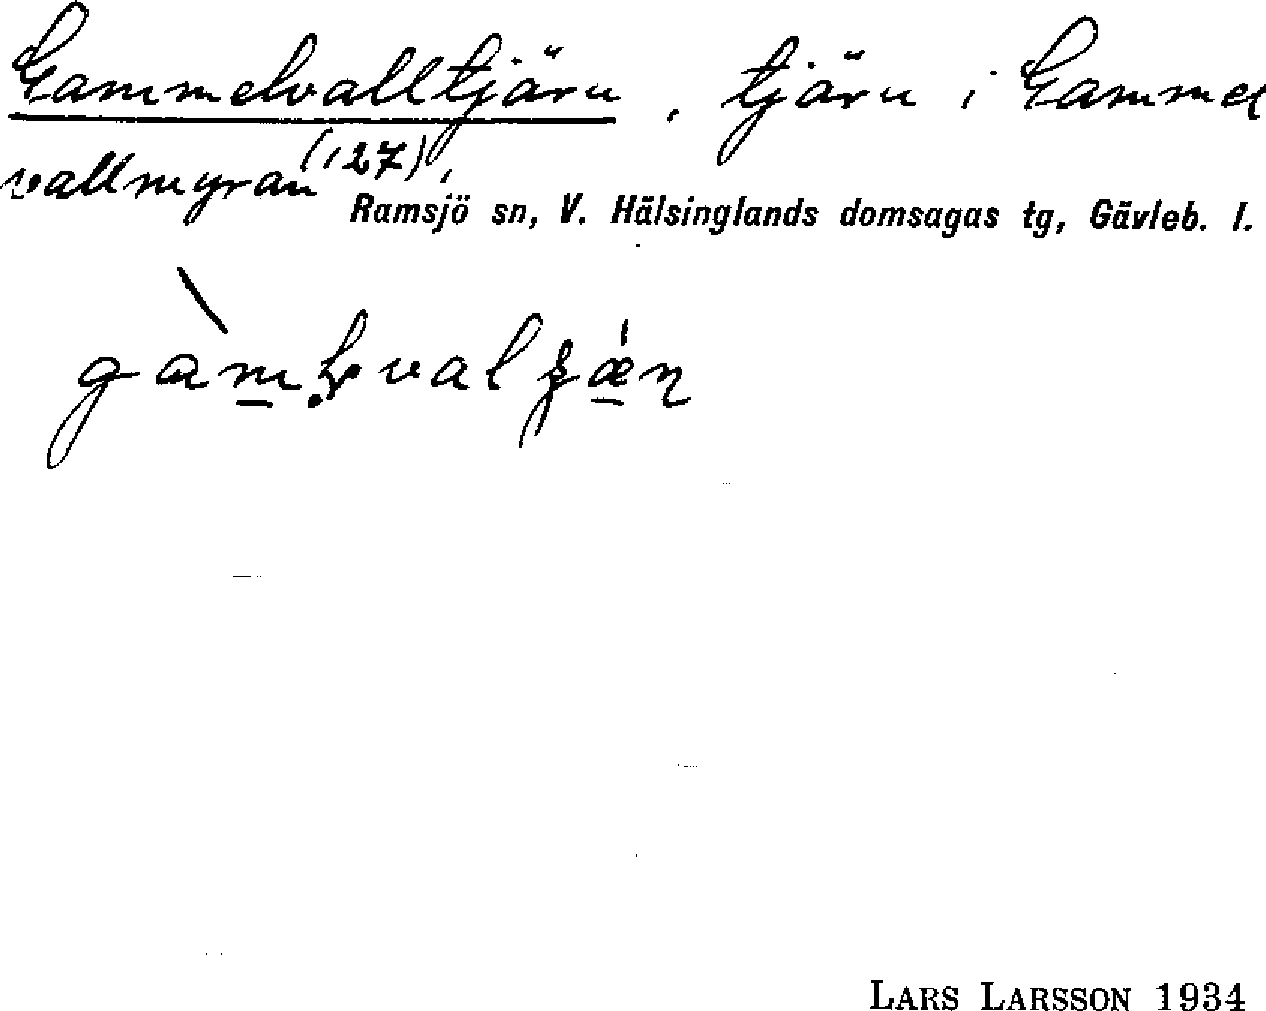 Gammelvalltjärn, tjärn i Gammel
vallmyran (127),
Ramsjö sn, V. Hälsinglands domsagas tg, Gävleb. l.
LARS LARSSON 1934